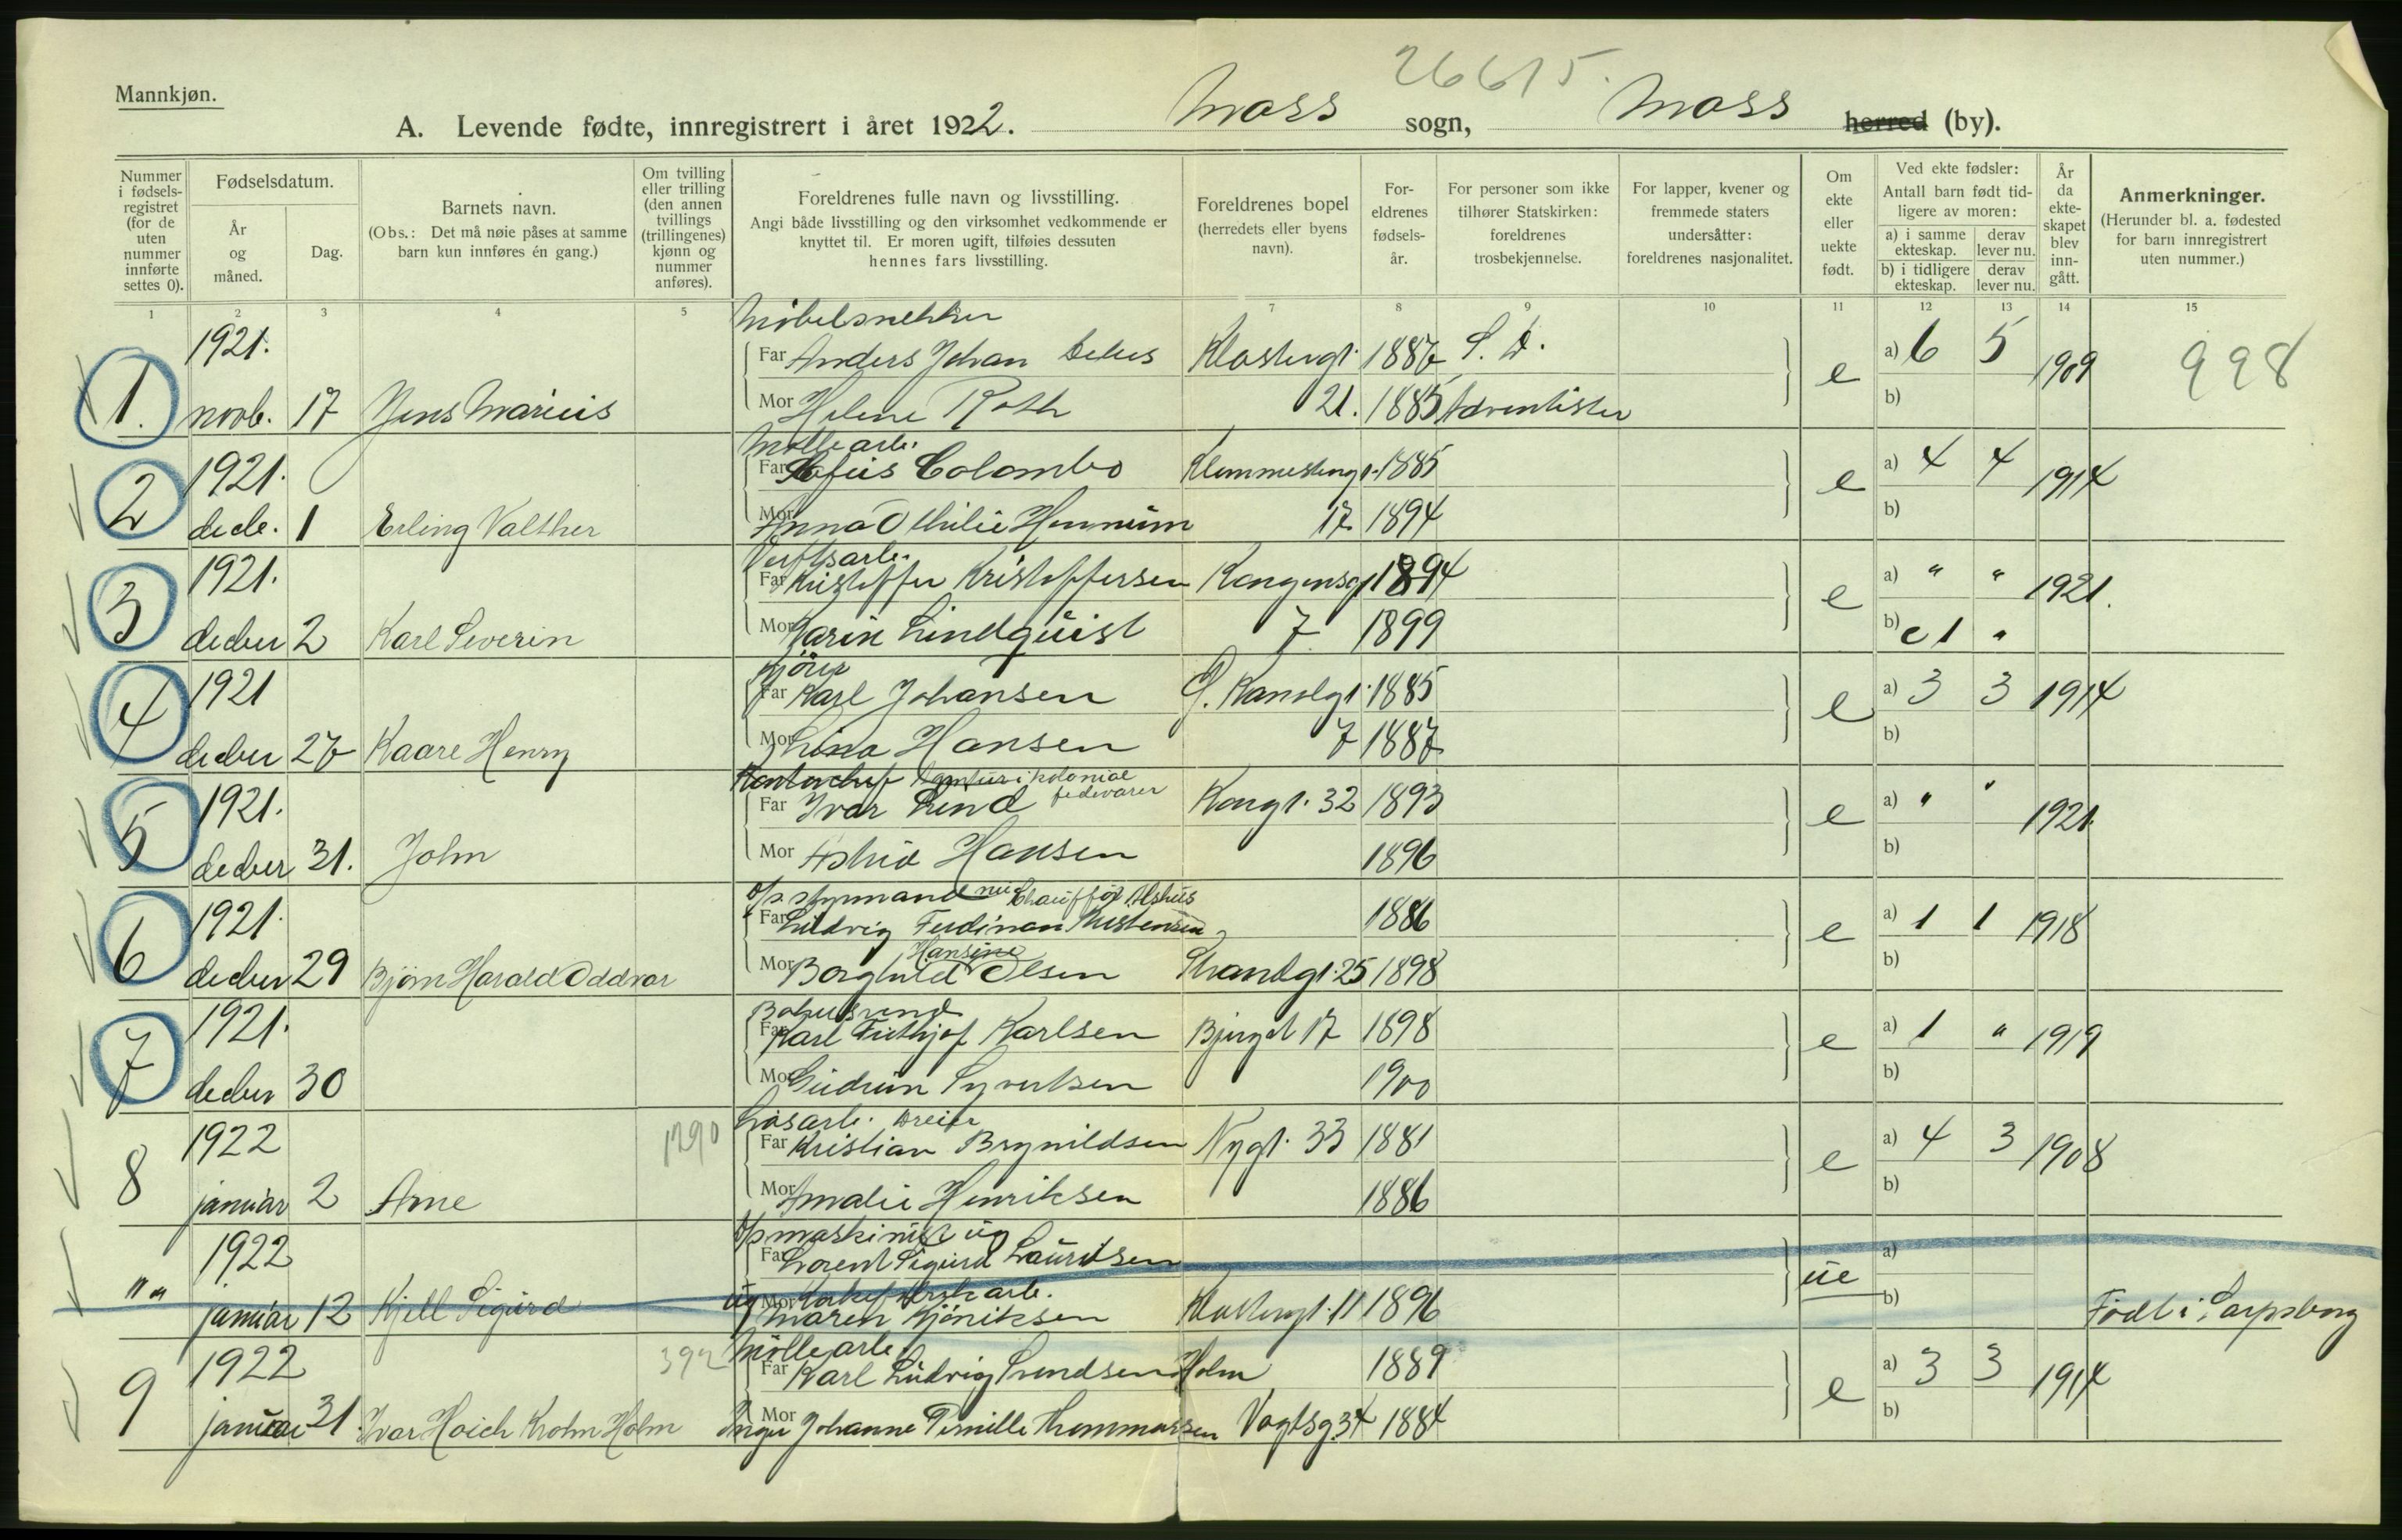 26615.
Mannkjøn.
A. Levende fødte, innregistrert i året 1922. Moss sogn, Moss herred (by).
Nummer i fødselsregistret (for de uten nummer innførte settes 0).
Fødselsdatum.
År og måned.
Dag.
Barnets navn.
(Obs.: Det må nøie påses at samme barn kun innføres én gang.)
Om tvilling eller trilling (den annen tvillings (trillingenes) kjønn og nummer anføres).
Foreldrenes fulle navn og livsstilling.
Angi både livsstilling og den virksomhet vedkommende er knyttet til. Er moren ugift, tilføies dessuten hennes fars livsstilling.
Foreldrenes bopel (herredets eller byens navn).
Foreldrenes fødselsår.
For personer som ikke tilhører Statskirken: foreldrenes trosbekjennelse.
For lapper, kvener og fremmede staters undersåtter: foreldrenes nasjonalitet.
Om ekte eller uekte født.
Ved ekte fødsler: Antall barn født tidligere av moren:
a) i samme ekteskap. derav lever nu.
b) i tidligere ekteskap. derav lever nu.
År da ekteskapet blev inngått.
Anmerkninger.
(Herunder bl. a. fødested for barn innregistrert uten nummer.)
1 2 3 4 5 7 8 9 10 11 12 13 14 15
Möbelsnekker
1921. Far Anders Johan Klostergt. 1887 S. D. a) 6 5
1. novb. 17 Jens Marius Mor Helene Roth 21. 1885 Adventister e b) 1909 998
Möllearb.
1921. Far Rofus Colombo 1885 a) 4 4
2 decb. 1 Erling Valther Mor Anna Othilie Hennum 17 1894 e b) 1914
Verftsarb.
1921. Far Kristoffer Kristoffersen Kongensg 1894 a) " "
3 decber 2 Karl Severin Mor Karin Lindquist 7 1899 e b) 1 " 1921.
Kjörer
1921 Far Karl Johansen G. Kanalgt. 1885 a) 3 3
4 decber 27 Kaare Henry Mor Hansen 7 1887 e b) 1914
Kontorchef Agentur i kolonial fedevarer
1921. Far Ivar Lund Kongt. 32 1893 a) " "
5 decber 31. John Mor Astrid Hansen 1896 e b) 1921.
o/s styrmand nu Chauffør
1921. Far Ludvig Ferdinan Kristensen 1886 a) 1 1
Hansine
6 decber 29 Bjørn Harald Oddvar Mor Borghild Olsen Strandgt. 25 1898 e b) 1918
1921. Far Karl Fritjof Karlsen 17 1898 a) 1 "
7 decber 30 Mor Gudrun Syvertsen 1900 e b) 1919
Dreier
1922 1290 Far Kristian Brynildsen Nygt. 33 1881 a) 4 3
8 januar 2 Arne Mor Amalie Henriksen 1886 e b) 1908
o/s maskinist ug
1922 Far Lorent Sigurd Lauritsen a)
"" januar 12 Kjell Sigurd ug Mor Maren Kjöniksen Klostergt. 11 1896 ue b) Född i Sarpsborg
Möllearb.
1922 392 Far Karl Ludvig Svendsen Holm 1889 a) 3 3
9 januar 31. Ivar Krohn Holm Mor Inger Johanne Pernille Thommassen Vogtsg 34 1884 e b) 1914